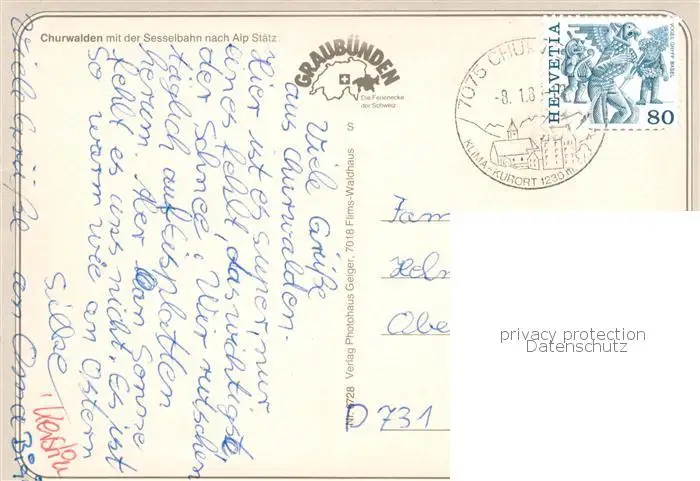 Churwalden mit der Sesselbahn nach Alp Stätz
GRAUBÜNDEN
Die Ferienecke
der Schweiz
7075 CHURW
-8.1.8
KLIMA-KURORT 1230 m
HELVETIA
VOGEL GRYFF BASEL
80
S
Nr. 6728 Verlag Photohaus Geiger, 7018 Flims-Waldhaus
Viele Grüße
aus Churwalden.
Hier ist es super, nur
eines fehlt, das wichtigste,
der Schnee. Wir rutschen
täglich auf Eisplatten
herum. Aber an Sonne
fehlt es uns nicht. Es ist
so warm wie an Ostern
Silke
Kerstin
viele Grüße an Oma
Fam
Hel
Obe
D 731
privacy protection
Datenschutz